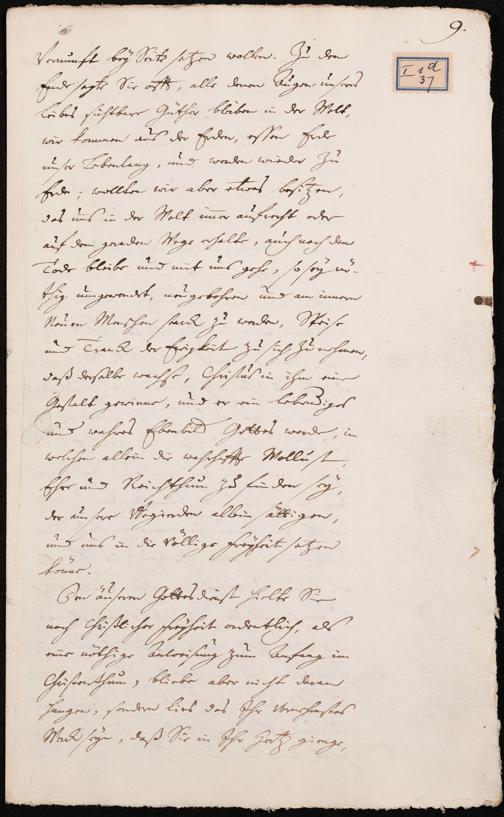 9.
I 1 d
37
Vernunft beÿ Seite setzen wollen. Zu dem
Ende sagte Sie offt, alle denen Augen unsers
Leibes sichtbare Güther bleiben in der Welt,
wir kommen aus der Erden, essen Erde
unser Lebenlang, und werden wieder zu
Erde; wollten wir aber etwas besitzen,
das uns in der Welt immer aufrecht oder
auf dem geraden Wege erhalte, auch nach dem
Tode bleibe und mit uns gehe, so seÿ nö-
thig umgewendt, neugebohren und am innern
Neuen Menschen starck zu werden, Speise
und Tranck der Ewigkeit zu sich zu nehmen,
daß derselbe wachse, Christus in ihm eine
Gestalt gewinne, und er ein lebendiges
und wahres Ebenbild Gottes werde, in
welchen allein die wahrhaffte Wollust,
Ehre und Reichthum zu finden seÿ,
der unsere Begierden allein sättigen,
und uns in die völlige Freÿheit setzen
könne.
Den äusern Gottesdienst hielte Sie
nach Christlicher Freÿheit ordentlich, als
eine nöthige Anweisung zum Anfang im
Christenthum, bliebe aber nicht daran
hangen, sondern lies das Ihr vornehmstes
Werck seÿn, daß Sie in Ihr Hertz gienge,